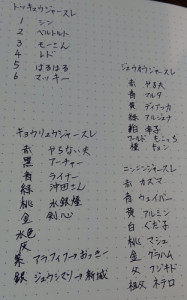 トッキュウジャースレ
1 シン
2 ベルトルト
3 モーさん
4 レド
5 はるはる
6 マッキー
キョウリュウジャースレ
赤 やらない夫
黒 アーチャー
青 ライナー
緑 沖田さん
桃 水銀燈
金 剣心
水色
灰
紫 アラフィフ→おっきー
銀 ジュウシマツ→新城
ジュウオウジャースレ
赤 やる夫
青 アルタ
黄 ディアッカ
緑 アルジュナ
鮑 幸子
ワールド もこっち
橙 キョン
ニンニンジャースレ
赤 カズマ
青 ウェイバー
黄 アルミン
白 ぐだ子
桃 マシュ
金 グラハム
父 フジキド
祖父 ネテロ